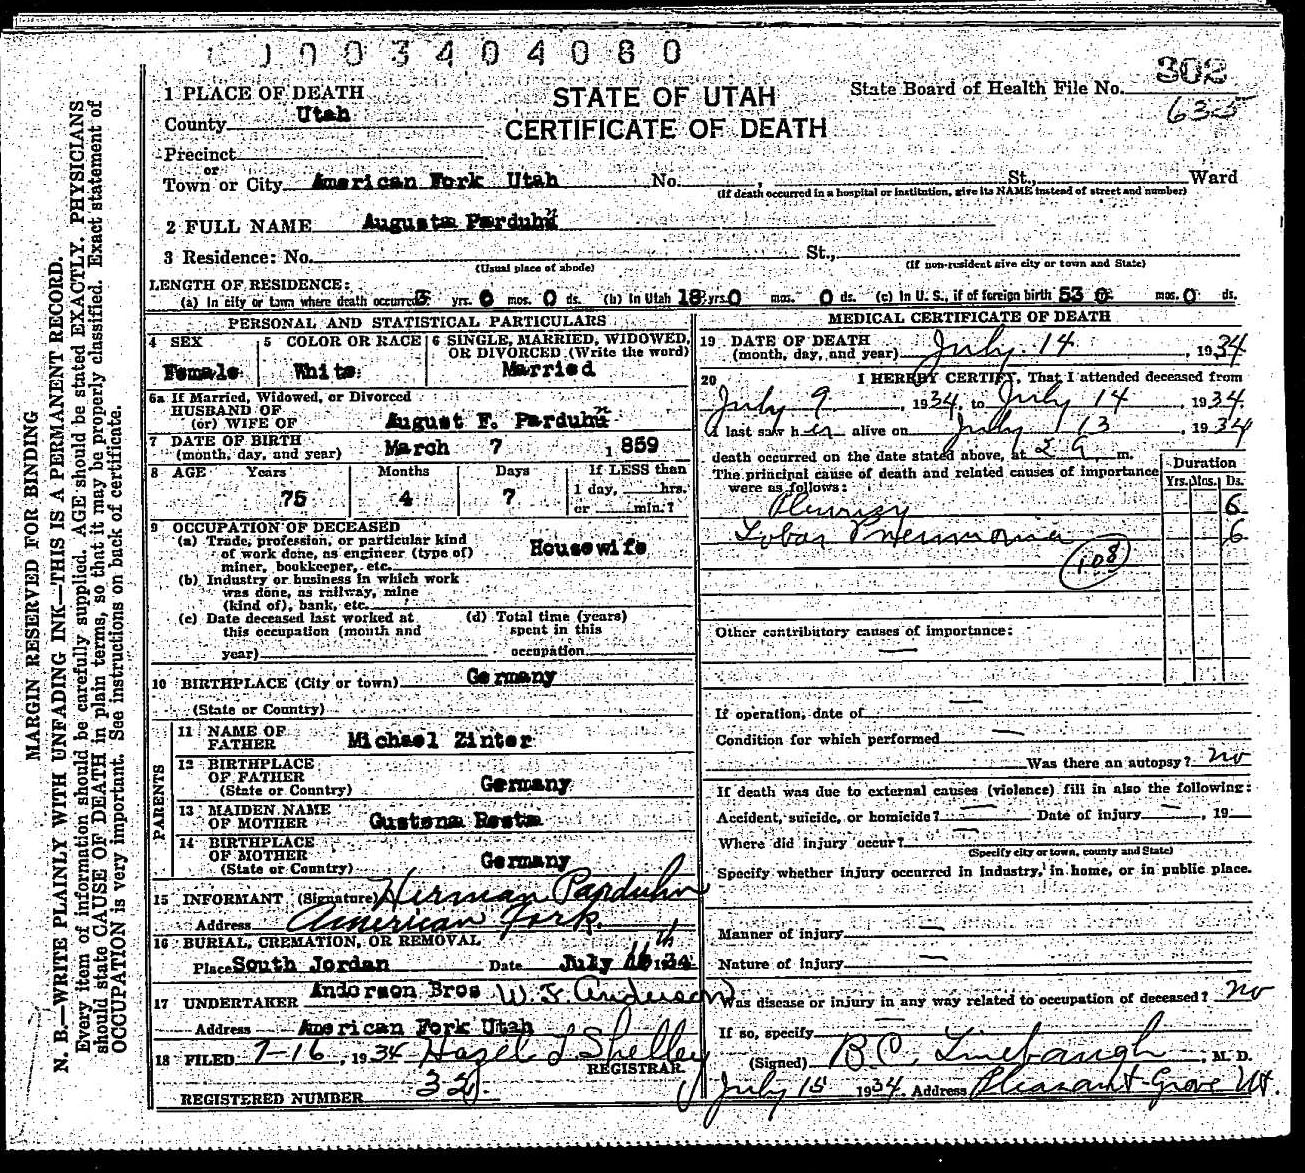 0 0 3 4 0 4 0 8 0
302
State Board of Health File No.
635
1 PLACE OF DEATH
STATE OF UTAH
County Utah
CERTIFICATE OF DEATH
Precinct
or
Town or City American Fork Utah No. St., Ward
(If death occurred in a hospital or institution, give its NAME instead of street and number)
2 FULL NAME Augusta Parduhn
3 Residence: No. St.,
(Usual place of abode) (If non-resident give city or town and State)
LENGTH OF RESIDENCE:
(a) In city or town where death occurred 3 yrs. 0 mos. 0 ds. (b) In Utah 18 yrs. 0 mos. 0 ds. (c) In U. S., if of foreign birth 53 0 mos. 0 ds.
PERSONAL AND STATISTICAL PARTICULARS
4 SEX
Female
5 COLOR OR RACE
White
6 SINGLE, MARRIED, WIDOWED,
OR DIVORCED (Write the word)
Married
6a If Married, Widowed, or Divorced
HUSBAND OF
(or) WIFE OF August F. Parduhn
7 DATE OF BIRTH
(month, day, and year) March 7 1859
8 AGE Years Months Days If LESS than
1 day, hrs.
75 4 7 or min.?
9 OCCUPATION OF DECEASED
(a) Trade, profession, or particular kind
of work done, as engineer (type of)
miner, bookkeeper, etc. Housewife
(b) Industry or business in which work
was done, as railway, mine
(kind of), bank, etc.
(c) Date deceased last worked at
this occupation (month and
year)
(d) Total time (years)
spent in this
occupation
10 BIRTHPLACE (City or town) Germany
(State or Country)
PARENTS
11 NAME OF
FATHER Michael Zinter
12 BIRTHPLACE
OF FATHER
(State or Country) Germany
13 MAIDEN NAME
OF MOTHER Gustena Resta
14 BIRTHPLACE
OF MOTHER
(State or Country) Germany
15 INFORMANT (Signature) Herman Parduhn
Address American Fork.
16 BURIAL, CREMATION, OR REMOVAL
Place South Jordan Date July th 1934
17 UNDERTAKER Anderson Bros W. F. Anderson
Address American Fork Utah
18 FILED 7-16, 1934 Hazel L Shelley
REGISTRAR.
REGISTERED NUMBER
MEDICAL CERTIFICATE OF DEATH
19 DATE OF DEATH
(month, day, and year) July 14, 1934
20 I HEREBY CERTIFY, That I attended deceased from
July 9, 1934, to July 14, 1934
I last saw her alive on July 13, 1934
death occurred on the date stated above, at 2 a m.
The principal cause of death and related causes of importance
were as follows:
Duration
Yrs. Mos. Ds.
Pleurisy 6
Lobar Pneumonia 6
108
Other contributory causes of importance:
—
If operation, date of —
Condition for which performed —
Was there an autopsy? no
If death was due to external causes (violence) fill in also the following:
Accident, suicide, or homicide? — Date of injury —, 19
Where did injury occur? —
(Specify city or town, county and State)
Specify whether injury occurred in industry, in home, or in public place.
Manner of injury —
Nature of injury —
Was disease or injury in any way related to occupation of deceased? no
If so, specify —
(Signed) B C Linebaugh, M. D.
July 15 1934. Address Pleasant Grove Ut.
MARGIN RESERVED FOR BINDING
N. B.—WRITE PLAINLY WITH UNFADING INK—THIS IS A PERMANENT RECORD.
Every item of information should be carefully supplied. AGE should be stated EXACTLY. PHYSICIANS
should state CAUSE OF DEATH in plain terms, so that it may be properly classified. Exact statement of
OCCUPATION is very important. See instructions on back of certificate.